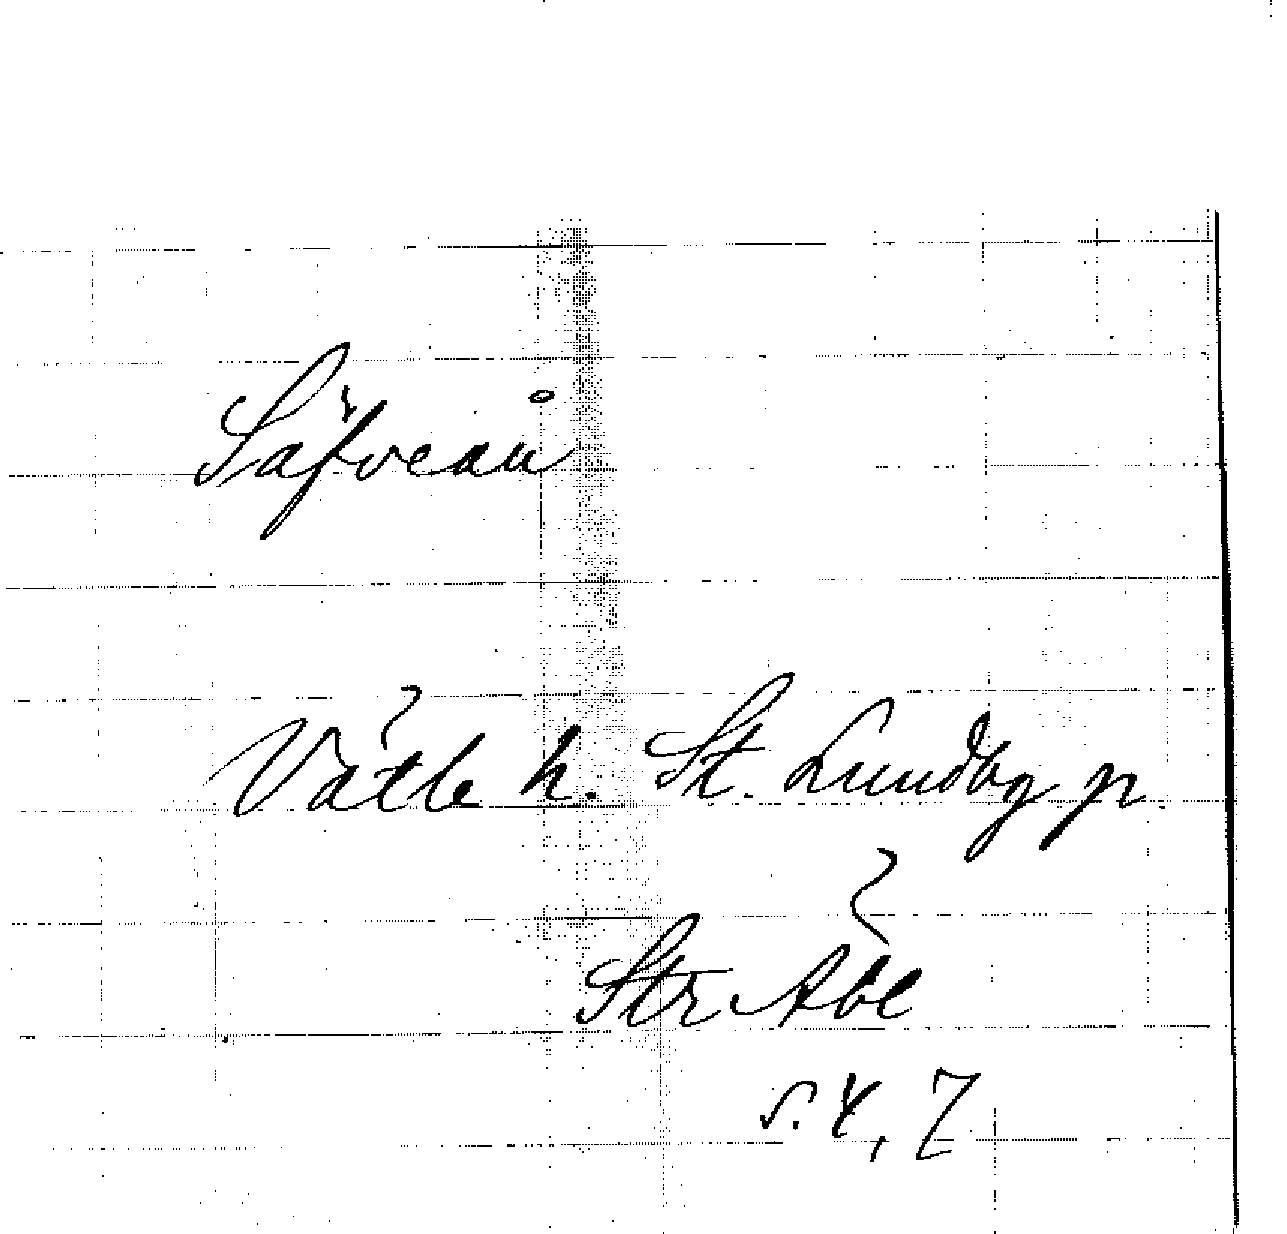 Säfveån
Vättle h. St. Lundby p.
Str Åbl
s. 4, 7